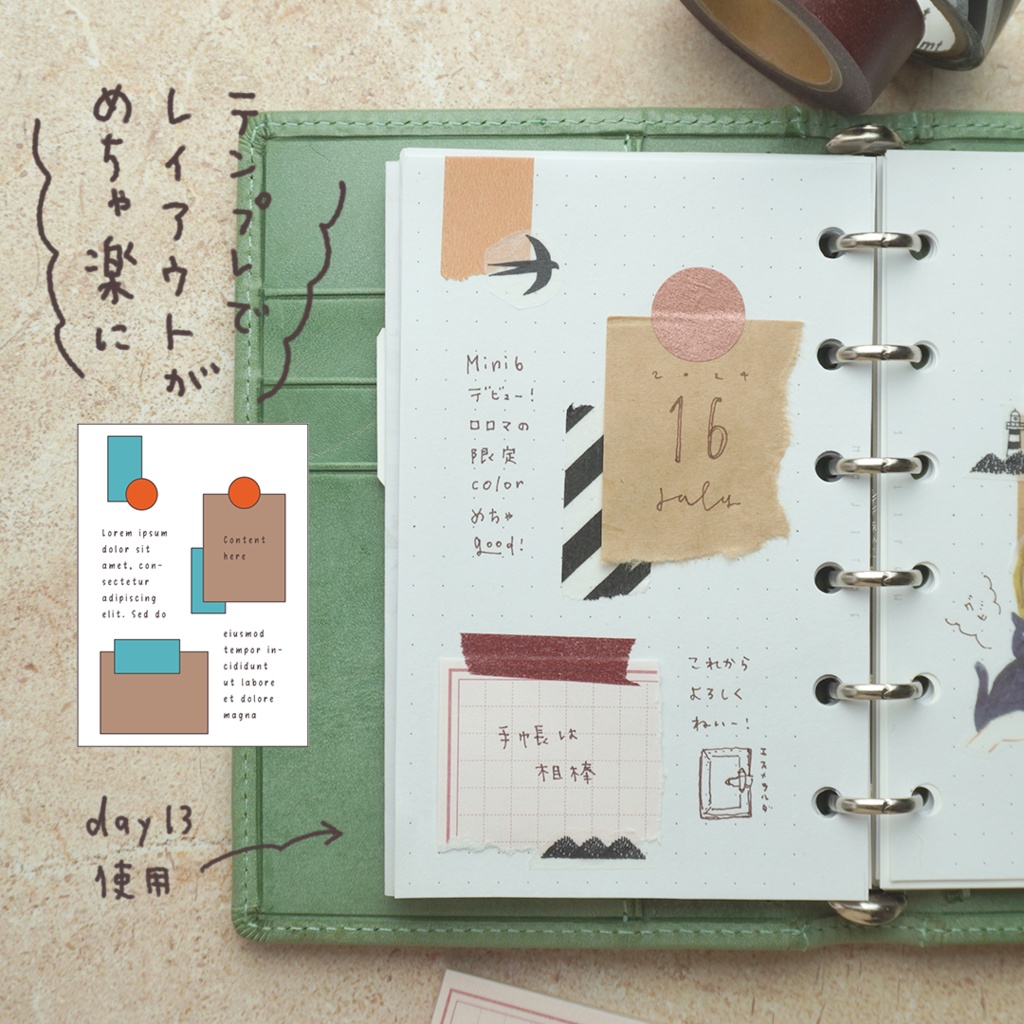 テンプレで
レイアウトが
めちゃ楽に
Lorem ipsum
dolor sit
amet, con-
sectetur
adipiscing
elit. Sed do
Content
here
eiusmod
tempor in-
cididunt
ut labore
et dolore
magna
day 13
使用
Mini6
デビュー!
ロロマの
限定
color
めちゃ
good!
2024
16
July
手帳は
相棒
これから
よろしく
ねいー!
mt